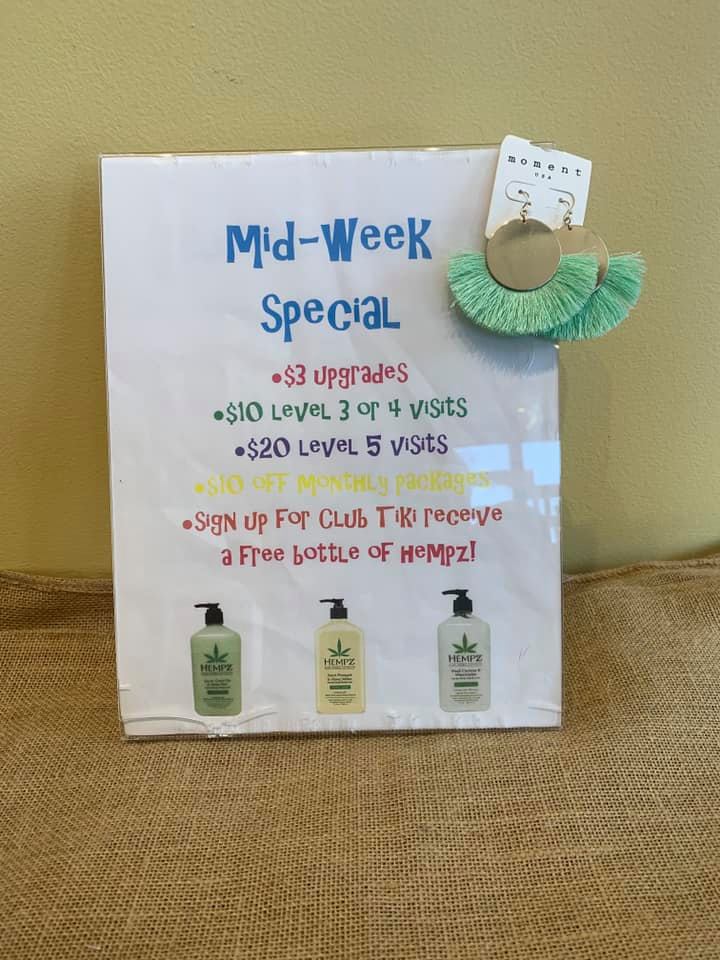 moment
USA
Mid-Week
Special
•$3 Upgrades
•$10 Level 3 or 4 Visits
•$20 Level 5 Visits
•$10 OFF Monthly packages
•Sign up For Club Tiki receive
a Free bottle of Hempz!
HEMPZ
HEMPZ
HEMPZ